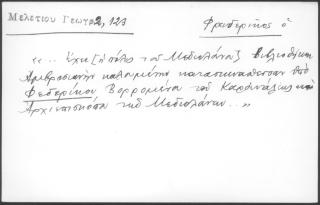 Μελετίου Γεωγρ 2, 123
Φρεδερῖκος ὁ
«.. Ἔχει [ἡ πόλις τοῦ Μεδιολάνου] Βιβλιοθήκην
Ἀμβροσιανὴν καλουμένην κατασκευασθεῖσαν ὑπὸ
Φεδερίκου Βορρομέου τοῦ Καρδινάλεως καὶ
Ἀρχιεπισκόπου τῆς Μεδιολάνου..»